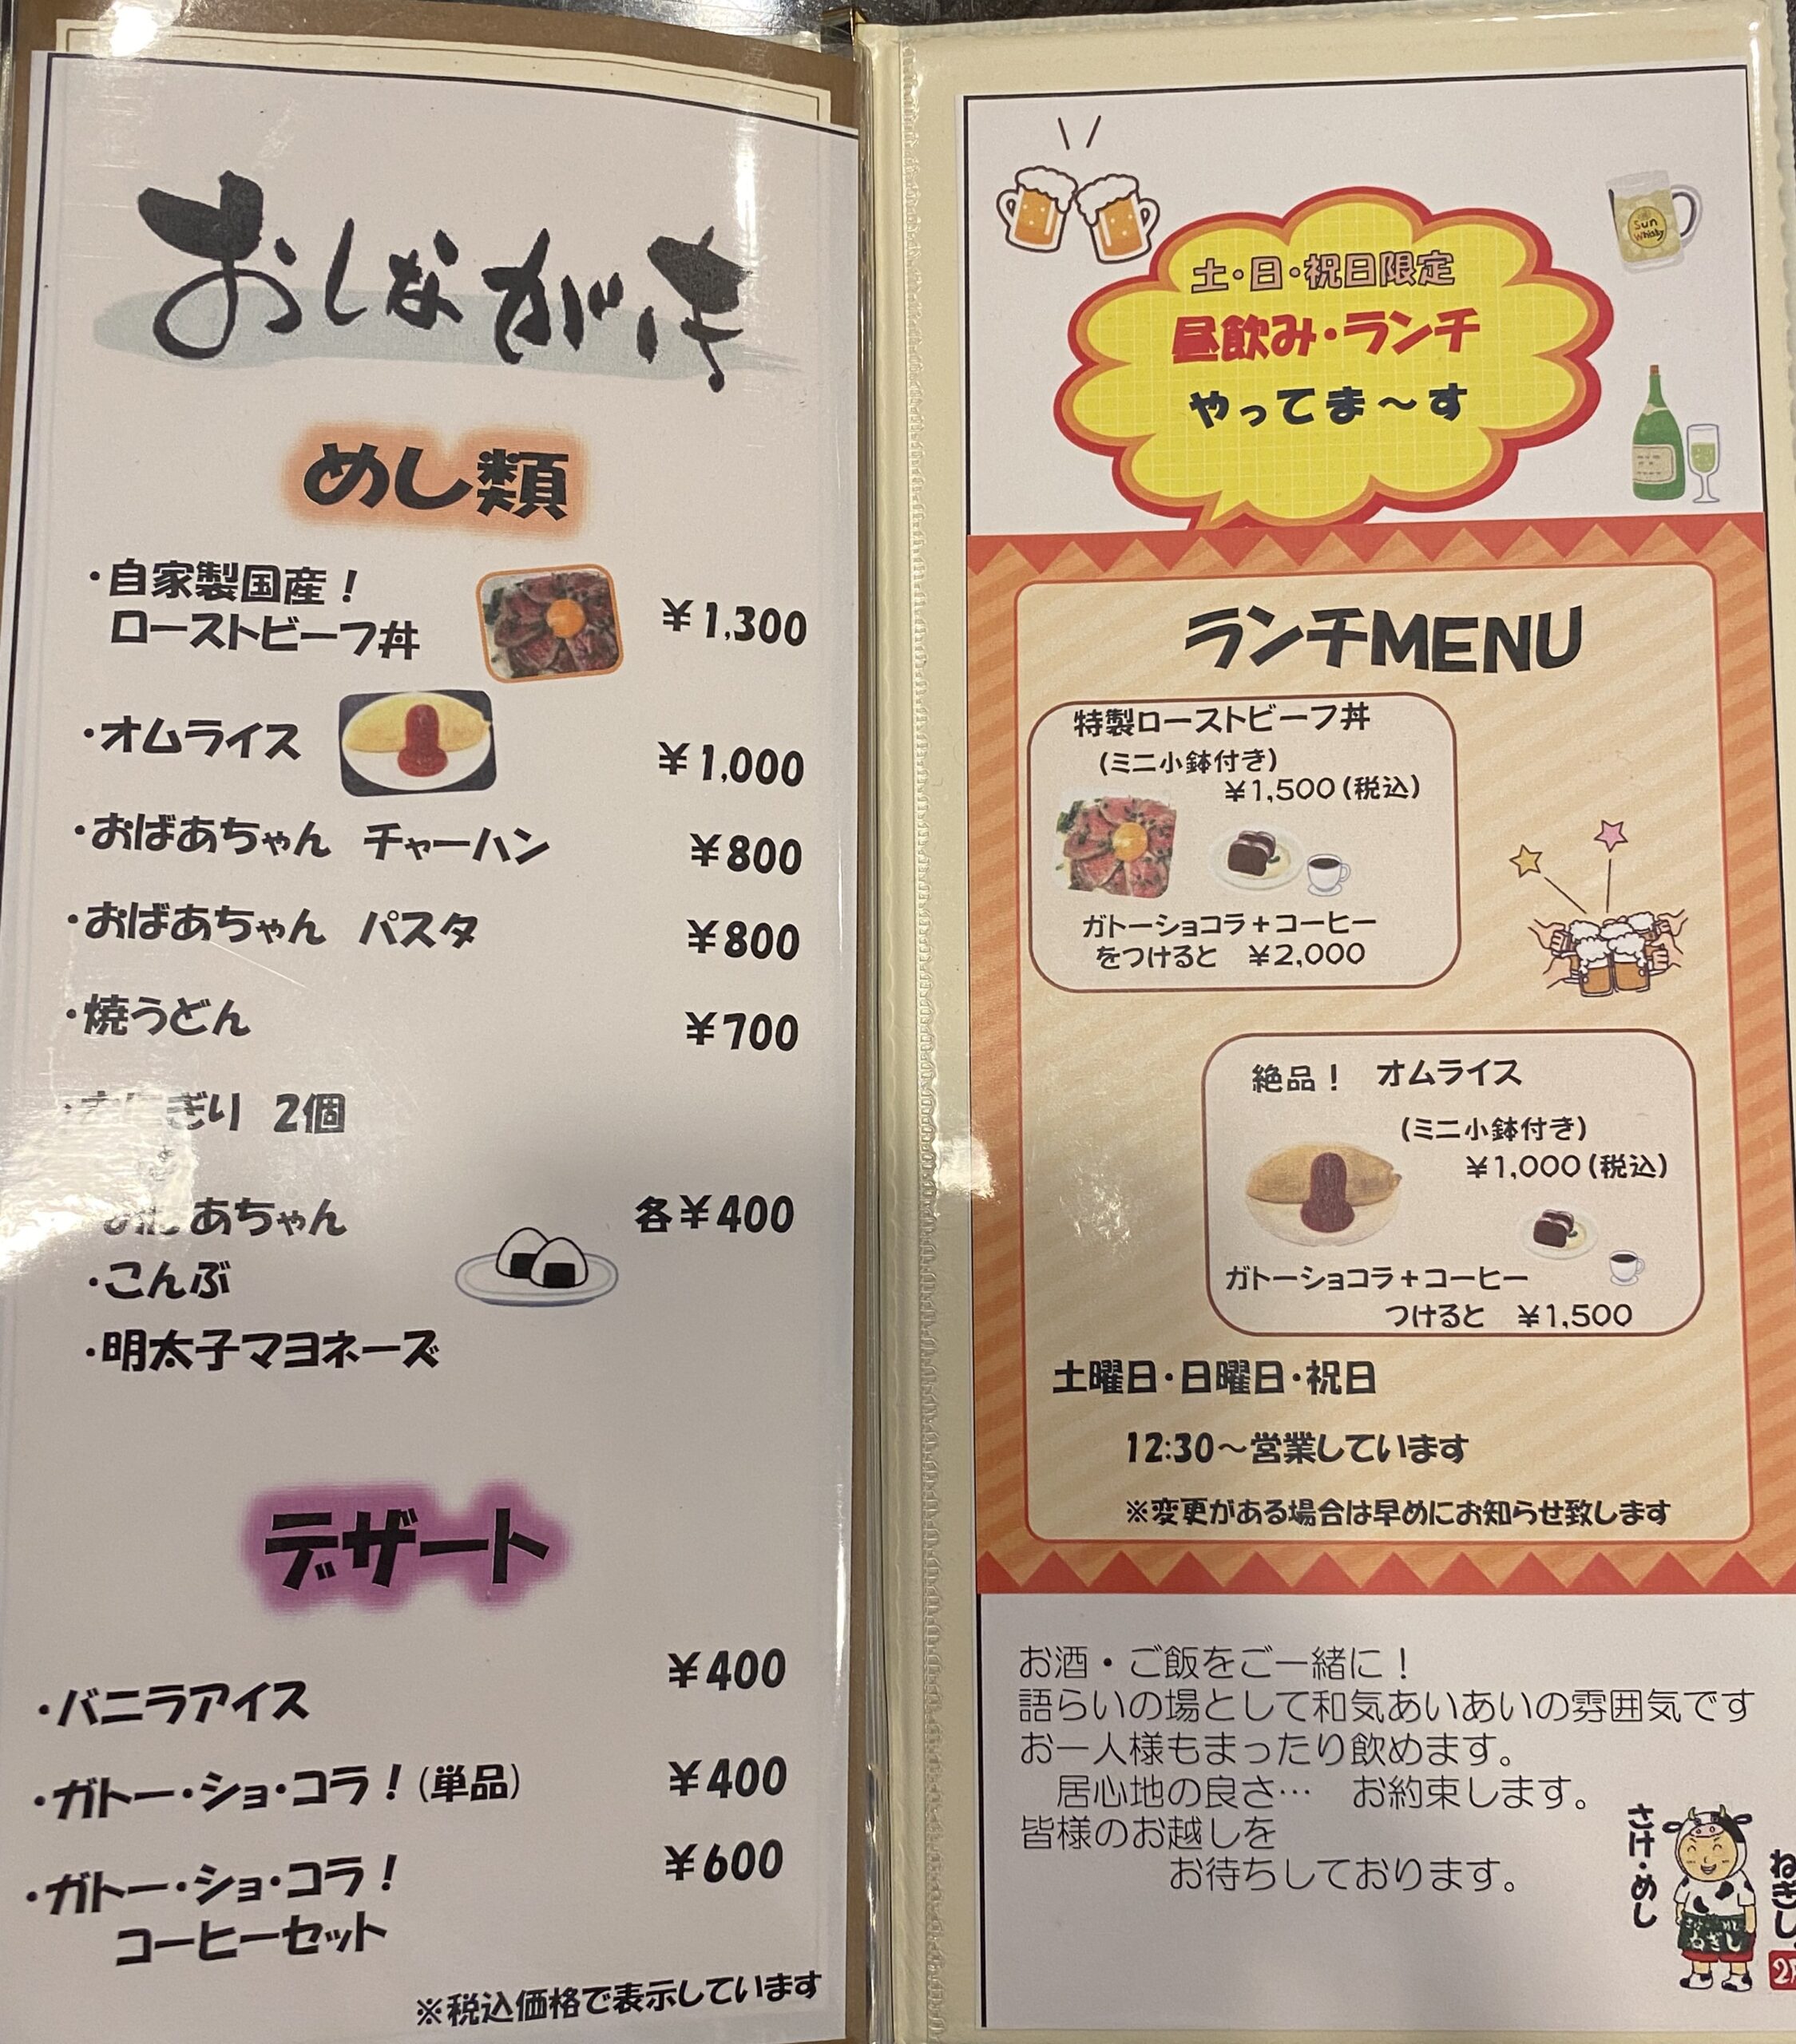 おしながき
めし類
・自家製国産！
ローストビーフ丼
￥1,300
・オムライス
￥1,000
・おばあちゃん チャーハン
￥800
・おばあちゃん パスタ
￥800
・焼うどん
￥700
・おにぎり 2個
おばあちゃん
各￥400
・こんぶ
・明太子マヨネーズ
デザート
・バニラアイス
￥400
・ガトー・ショ・コラ！(単品)
￥400
・ガトー・ショ・コラ！
￥600
コーヒーセット
※税込価格で表示しています
Sun
Whisky
土・日・祝日限定
昼飲み・ランチ
やってま～す
ランチMENU
特製ローストビーフ丼
(ミニ小鉢付き)
￥1,500(税込)
ガトーショコラ＋コーヒー
をつけると ￥2,000
絶品！ オムライス
(ミニ小鉢付き)
￥1,000(税込)
ガトーショコラ＋コーヒー
つけると ￥1,500
土曜日・日曜日・祝日
12:30～営業しています
※変更がある場合は早めにお知らせ致します
お酒・ご飯をご一緒に！
語らいの場として和気あいあいの雰囲気です
お一人様もまったり飲めます。
居心地の良さ… お約束します。
皆様のお越しを
お待ちしております。
さけ・めし
ねぎし
ねぎし